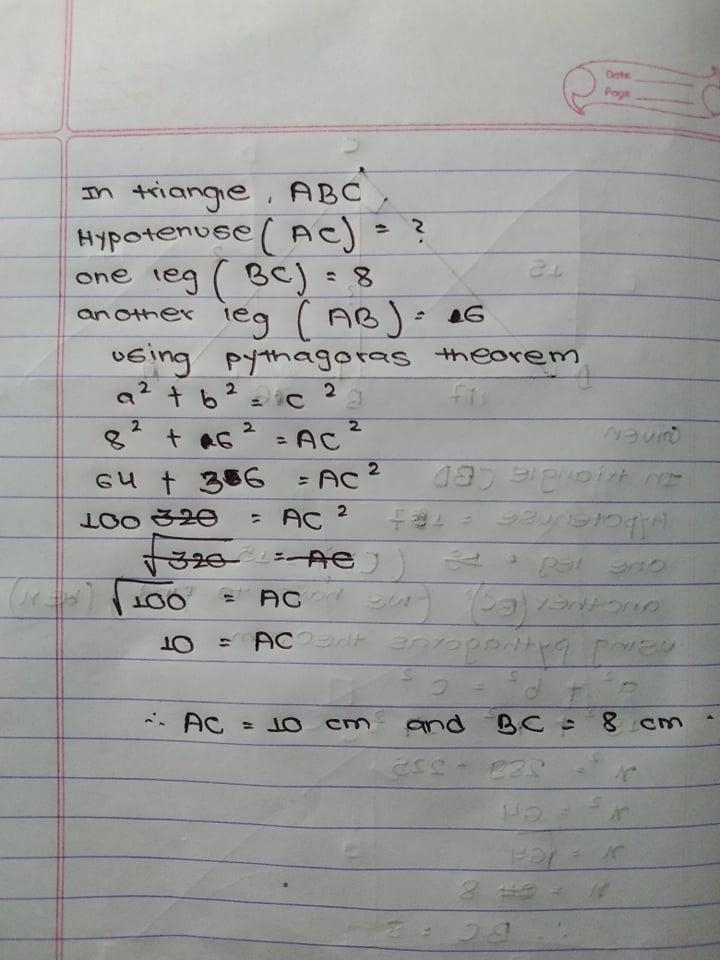 Date
Page
In triangle, ABC,
Hypotenuse (AC) = ?
one leg (BC) = 8
another leg (AB) = 6
using pythagoras theorem
a² + b² = c²
8² + 6² = AC²
64 + 36 = AC²
100 320 = AC²
√320 = AC
√100 = AC
10 = AC
∴ AC = 10 cm and BC = 8 cm.